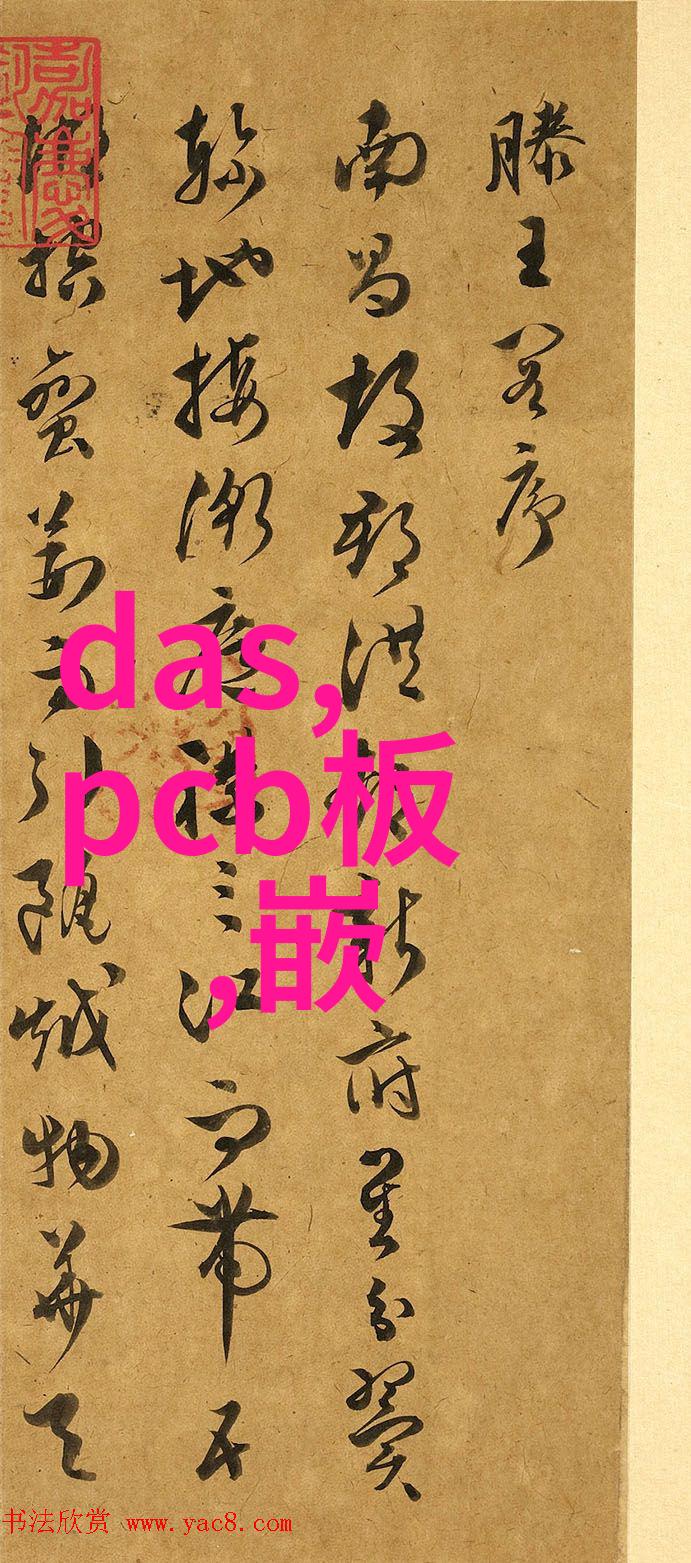 滕王閣序
南昌故郡洪都新府星分翼
軫地接衡廬襟三江而帶五
湖控蠻荊而引甌越物華天
das,
pcb板
,嵌
书法欣赏 www.yac8.com